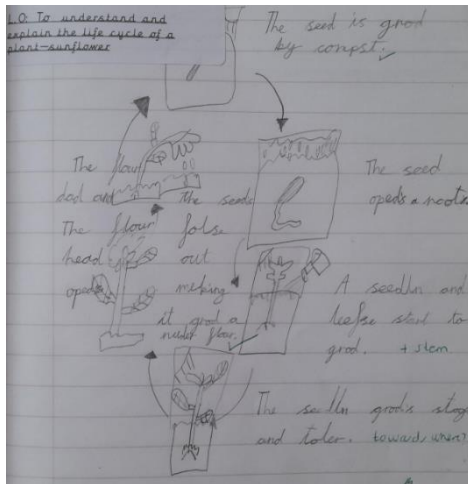 L.O: To understand and
explain the life cycle of a
plant-sunflower
The seed is grod
by compst.
The seed
opeds a roots
A seedlin and
leefse start to
grod. + stem
The seedln grods strog
and toler. toward, when?
The flour
head
oped
The flour
died and the seeds
folse
out
making
it grod a
nuther flour.